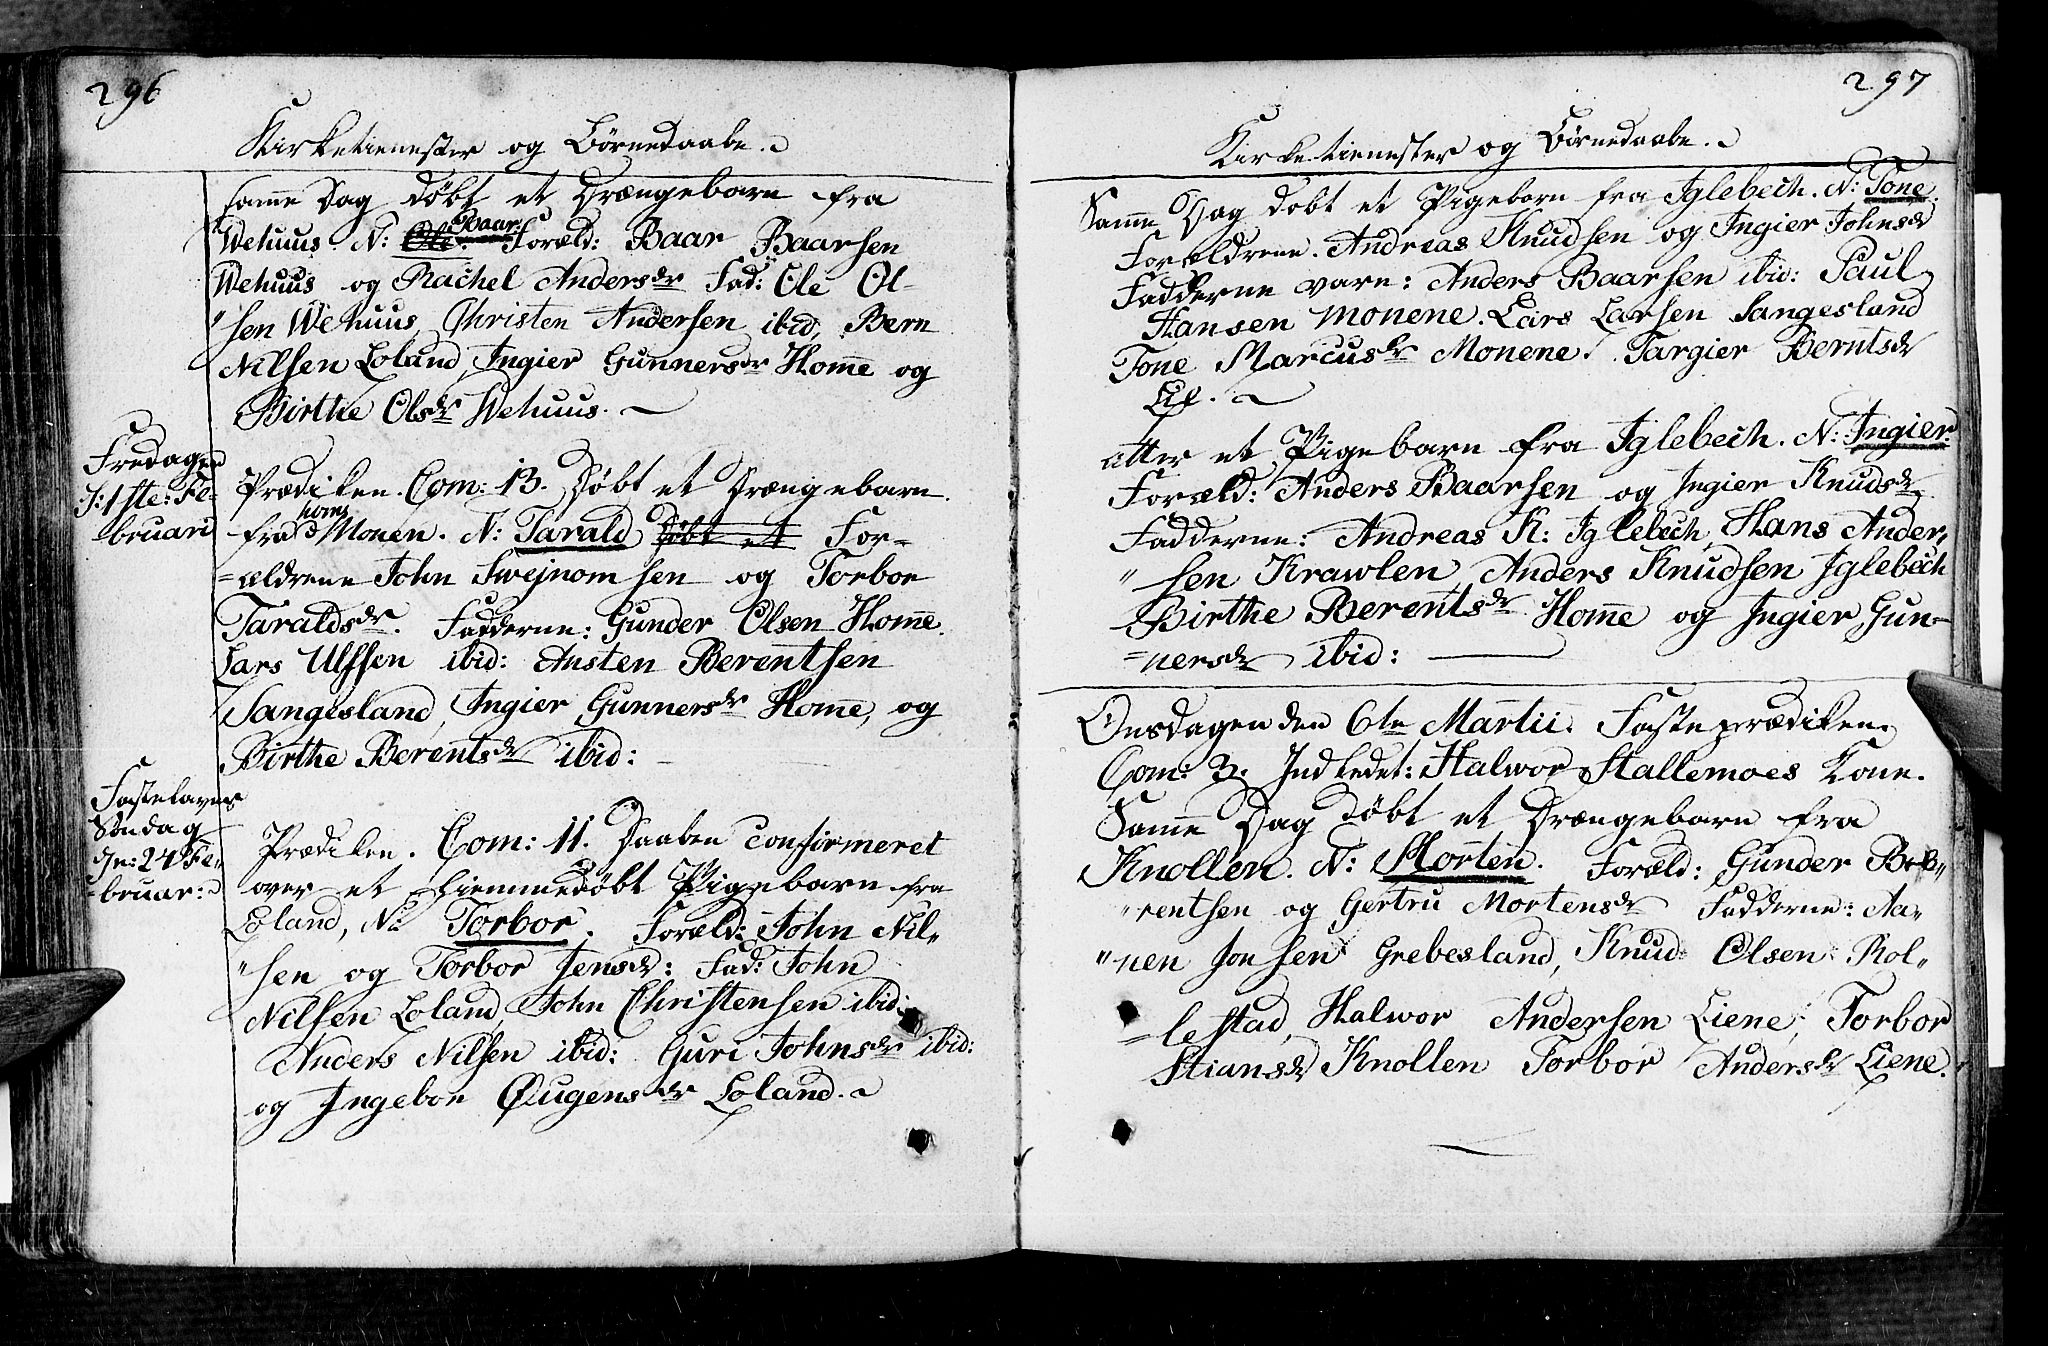 296
Kirketienester og Børnedaabe.
samme Dag døbt et Drængebarn fra
Wehuus N: Ole Baar Foræld: Baar Baarsen
Wehuus og Rachel Andersdr Fad: Ole Ol-
"sen Wehuus, Christen Andersen ibid, Bern
Nilsen Loland, Ingier Gunnersdr Home og
Birthe Olsdr Wehuus.
Fredagen
d: 1ste Fe-
bruari
Prædiken. Com: 13. Døbt et Drængebarn
fra Homs Monen. N: Tarald Døbt et For-
=ældrene John Swejnomsen og Torbor
Taraldsdr. Fadderne: Gunder Olsen Home
Lars Ulfsen ibid: Austen Berentsen
Sangesland, Ingier Gunnersdr Home, og
Birthe Berentsdr ibid:
Fastelavns
Søndag
dn: 24 Fe-
-bruar:
Prædiken. Com: 11. Daaben confirmeret
over et hiemmedøbt Pigebarn fra
Loland, N: Torbor. Foræld: John Nil-
"sen og Torbor Jensdr: Fad: John
Nilsen Loland, John Christensen ibid:
Anders Nilsen ibid: Guri Johnsdr ibid:
og Ingebor Øugensdr Loland.
297
Kirketienester og Børnedaabe.
Samme Dag døbt et Pigebarn fra Iglebech. N: Tone.
Forældrene. Andreas Knudsen og Ingier Johnsdr
Fadderne vare: Anders Baarsen ibid: Paul
Hansen Monene. Lars Larsen Sangesland
Tone Marcusdr Monene. Targier Berntsdr
Atter et Pigebarn fra Iglebech. N: Ingier.
Foræld: Anders Baarsen og Ingier Knudsdr
Fadderne: Andreas K: Iglebech, Hans Ander-
"sen Krawlen, Anders Knudsen Iglebech
Birthe Berentsdr Home og Ingier Gun-
=nersdr ibid:
Onsdagen den 6te Martii. Fasteprædiken.
Com: 3. Indledet: Halwor Stallemoes Kone.
Samme Dag døbt et Drængebarn fra
Knollen. N: Morten. Foræld: Gunder Be-
"rentsen og Gertru Mortensdr Fadderne: Aa-
"nen Jonsen Grebesland, Knud Olsen Rol-
=lestad, Halwor Andersen Liene, Torbor
Stiansdr Knollen Torbor Andersdr Liene.